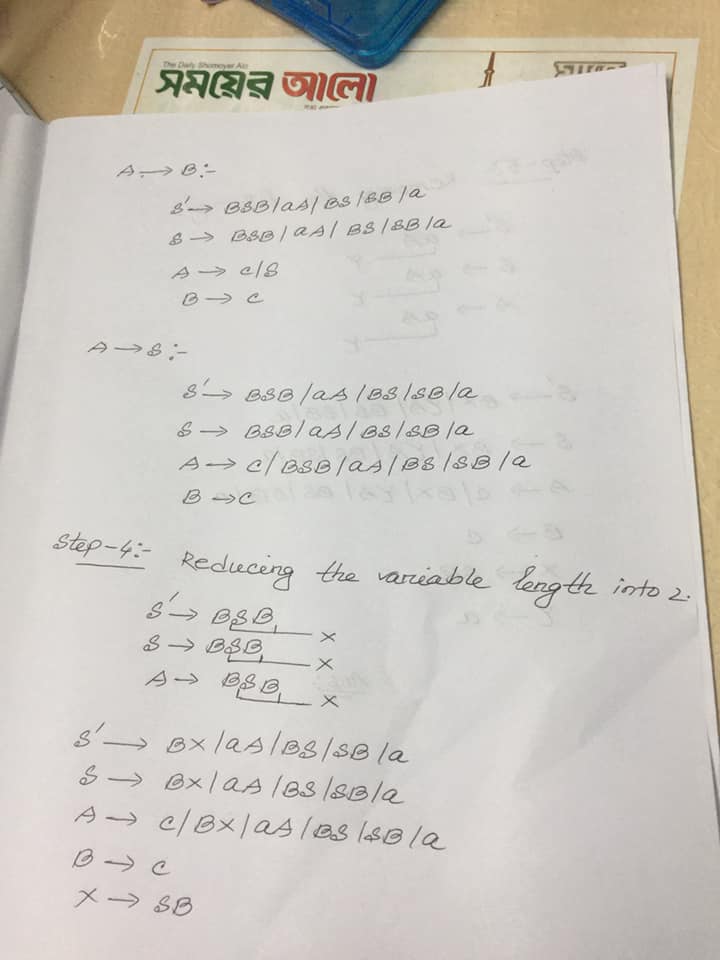 The Daily Shomoyer Alo
সময়ের আলো
A → B :-
S' → BSB / aA / BS / SB / a
S → BSB / aA / BS / SB / a
A → C / S
B → C
A → S :-
S' → BSB / aA / BS / SB / a
S → BSB / aA / BS / SB / a
A → C / BSB / aA / BS / SB / a
B → C
Step-4:- Reducing the variable length into 2.
S' → BSB x
S → BSB x
A → BSB x
S' → BX / aA / BS / SB / a
S → BX / aA / BS / SB / a
A → C / BX / aA / BS / SB / a
B → C
X → SB